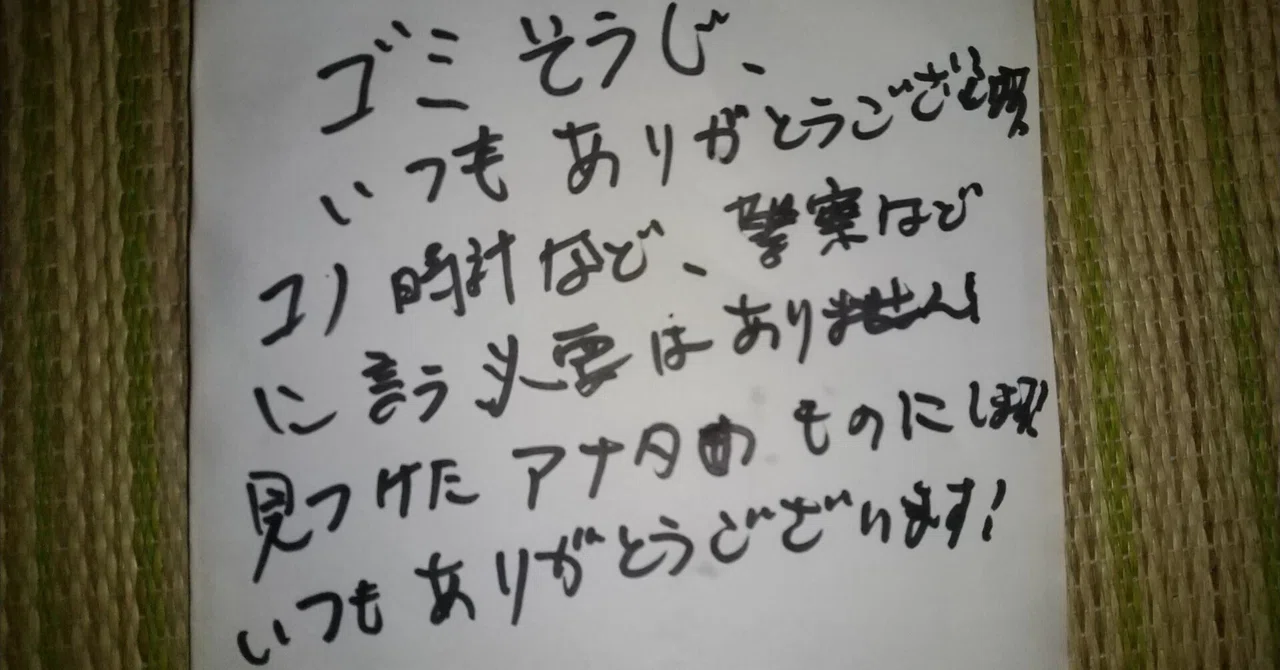 ゴミそうじ、
いつもありがとうございます
コノ時計など、警察など
に言う必要はありません!
見つけたアナタのものにします!
いつもありがとうございます!